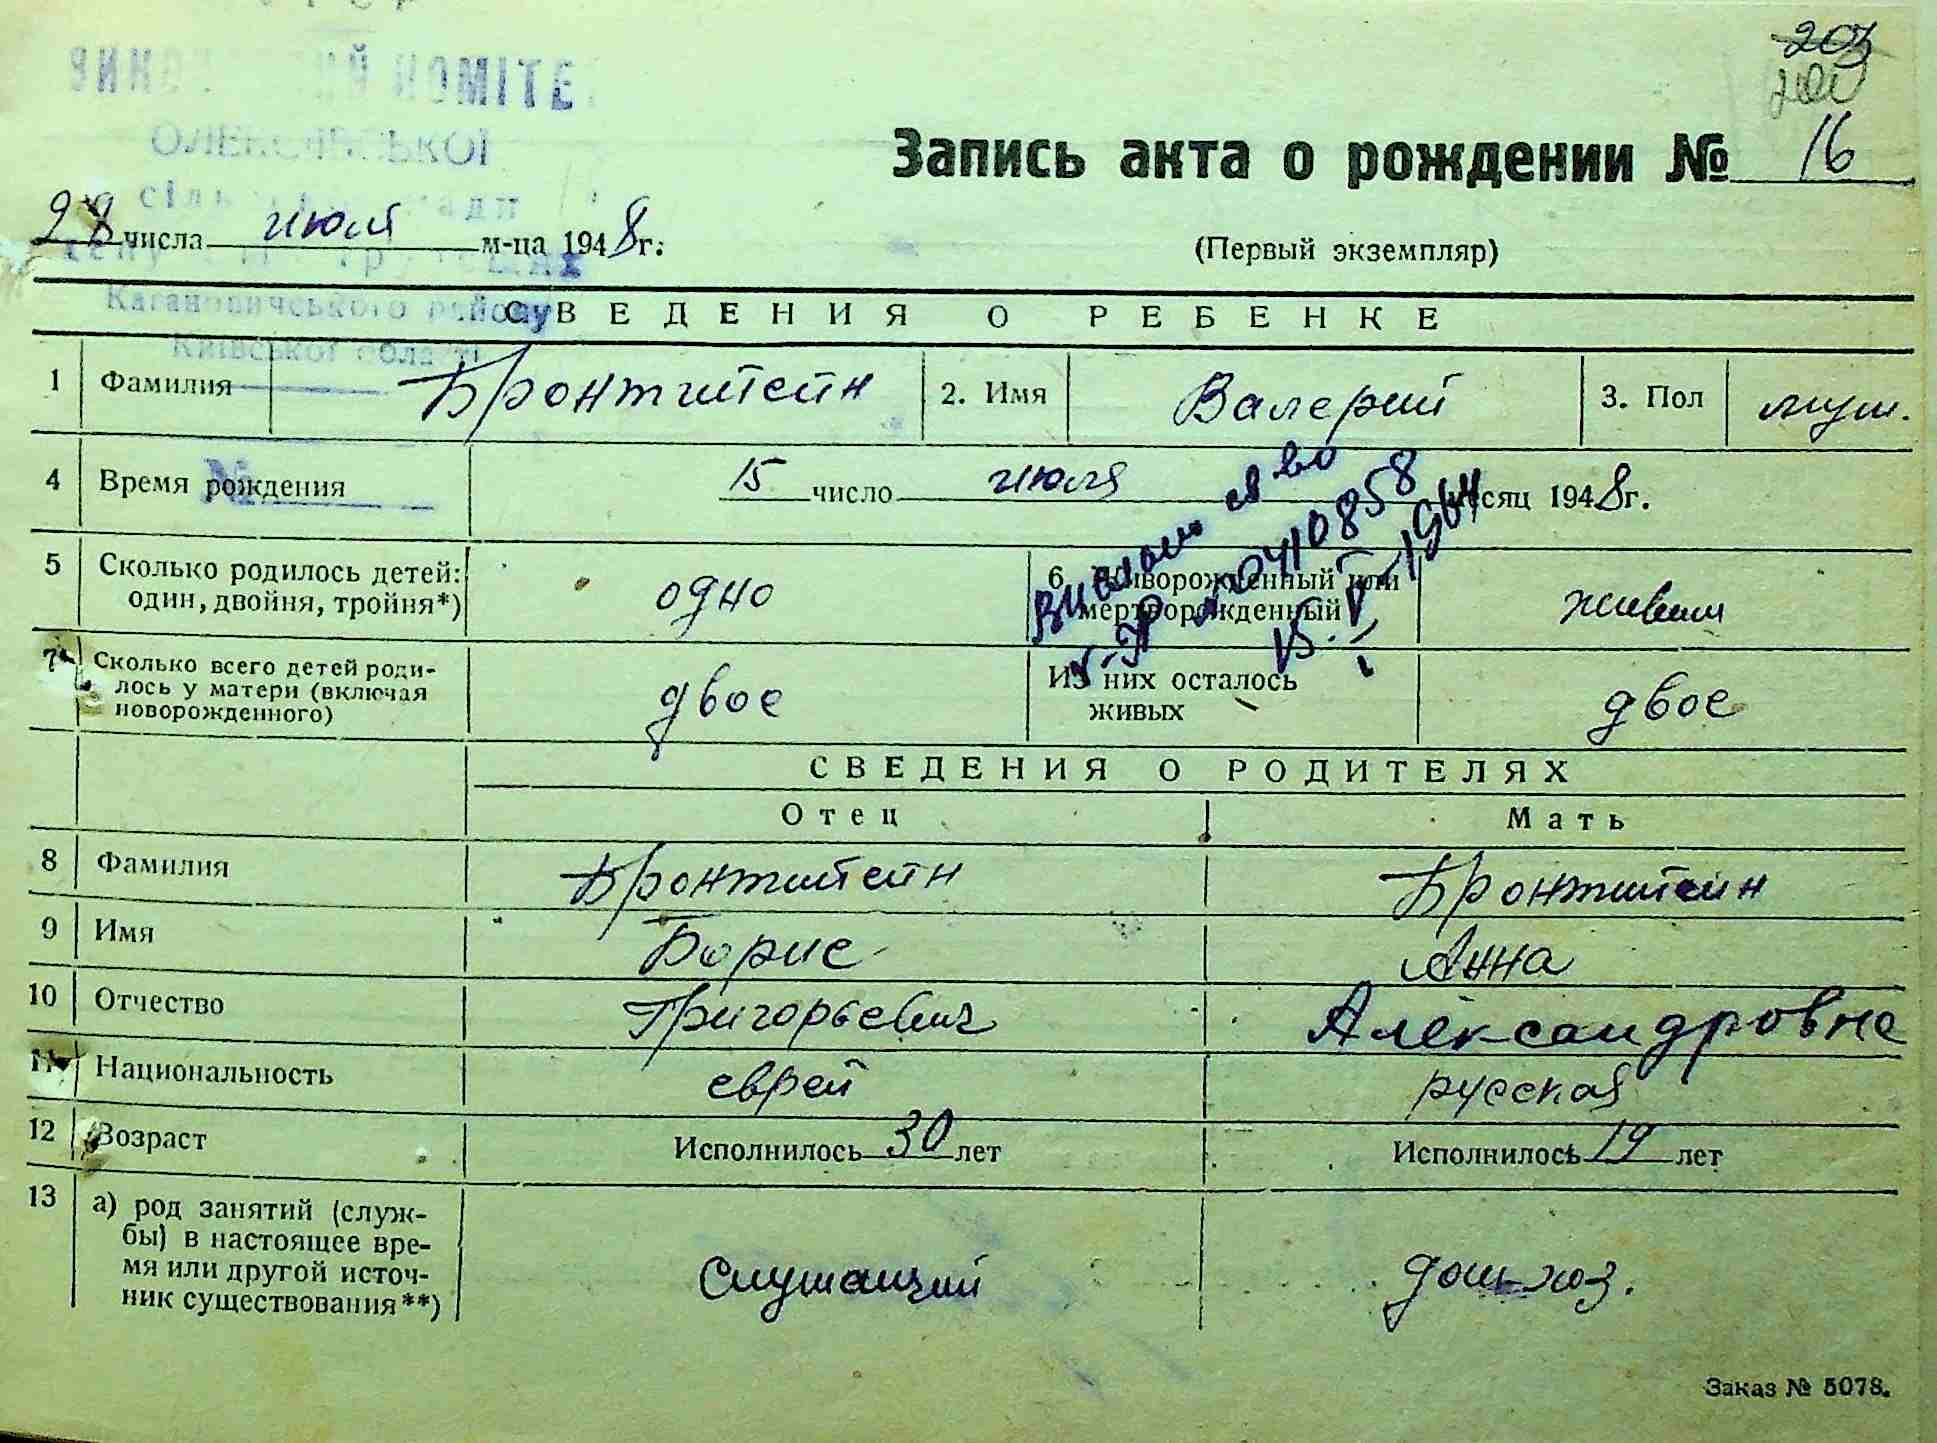 203
Запись акта о рождении № 16
КОМІТЕ
ОЛЕКСІЇВСЬКОЇ
Кагановичського району
Київської області
№
28 числа июля м-ца 1948 г.
(Первый экземпляр)
СВЕДЕНИЯ О РЕБЕНКЕ
1 Фамилия Бронтштейн 2. Имя Валерий 3. Пол муж.
4 Время рождения 15 число июля месяц 1948 г.
5 Сколько родилось детей: один, двойня, тройня*) одно 6. Живорожденный или мертворожденный живым
7 Сколько всего детей родилось у матери (включая новорожденного) двое Из них осталось живых двое
Видано св во
№ 0410858
V-1964
СВЕДЕНИЯ О РОДИТЕЛЯХ
Отец Мать
8 Фамилия Бронтштейн Бронтштейн
9 Имя Борис Анна
10 Отчество Григорьевич Александровна
11 Национальность еврей русская
12 Возраст Исполнилось 30 лет Исполнилось 19 лет
13 а) род занятий (служ-
бы) в настоящее вре-
мя или другой источ-
ник существования**) Служащий дом-хоз.
Заказ № 5078.